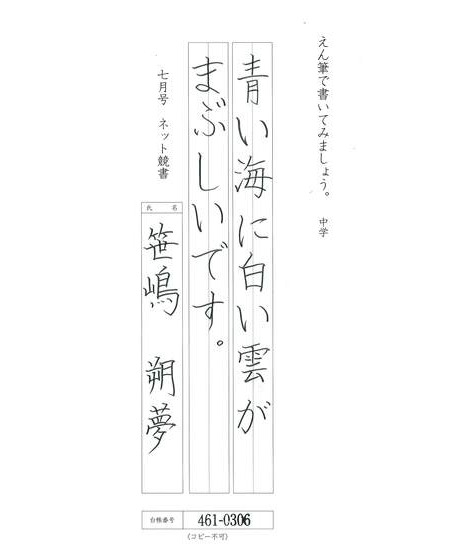 えん筆で書いてみましょう。 中学
青い海に白い雲が
まぶしいです。
七月号 ネット競書
氏名
笹嶋 朔夢
台帳番号 461-0306
(コピー不可)